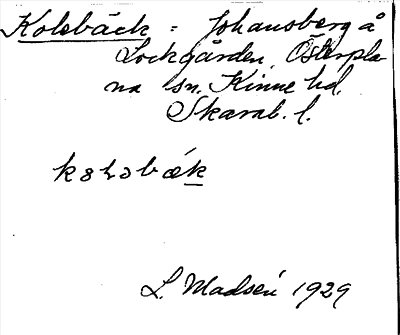 Kolebäck = Johansberg å
Lockgården, Österpla-
na sn. Kinne hd.
Skarab. l.
L. Madsén 1929